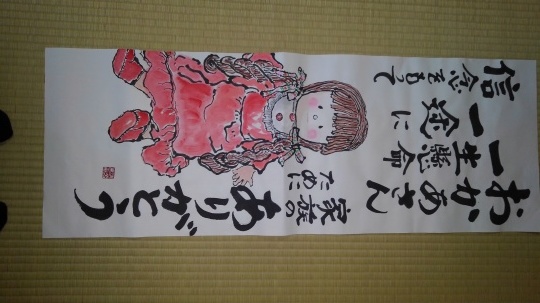 おかあさん
一生懸命
一途に
信念をもって
家族の
ために
ありがとう